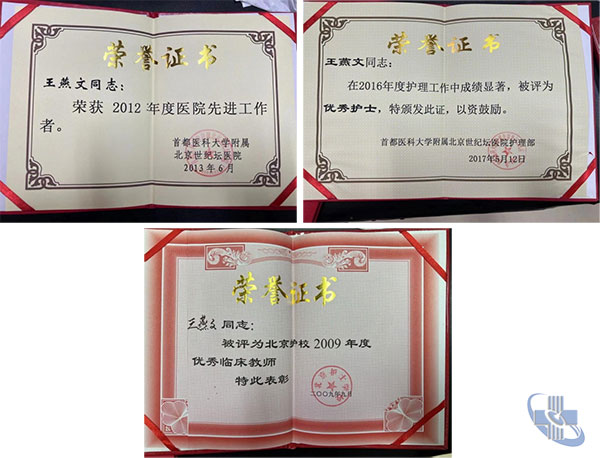 荣誉证书
王燕文同志：
荣获 2012 年度医院先进工作
者。
首都医科大学附属
北京世纪坛医院
2013 年 6 月
荣誉证书
王燕文同志：
在2016年度护理工作中成绩显著，被评为
优秀护士，特颁发此证，以资鼓励。
首都医科大学附属北京世纪坛医院护理部
2017年5月12日
荣誉证书
王燕文 同志：
被评为北京护校 2009 年度
优秀临床教师
特此表彰
二〇〇九年九月